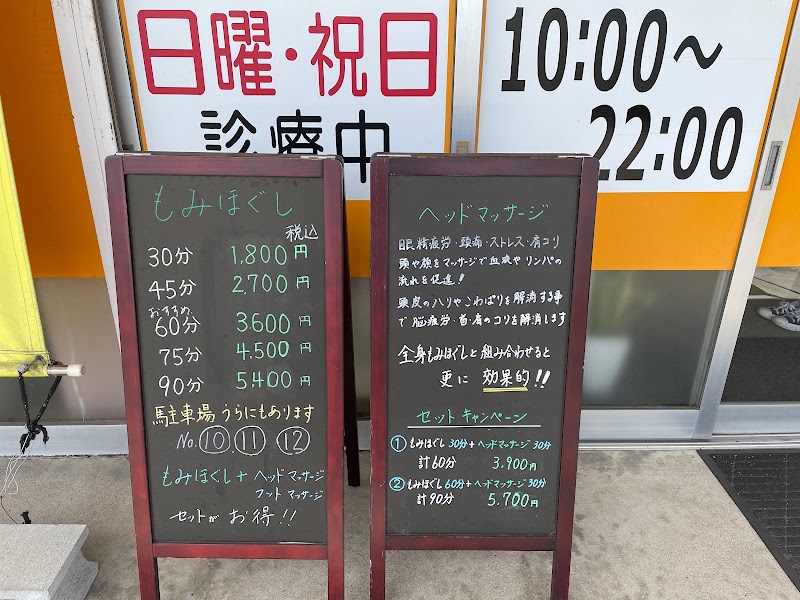 日曜・祝日
診療中
10:00〜
22:00
もみほぐし
税込
30分 1.800円
45分 2.700円
おすすめ
60分 3.600円
75分 4.500円
90分 5.400円
駐車場うらにもあります
No.⑩.⑪.⑫
もみほぐし+ヘッドマッサージ
フットマッサージ
セットがお得!!
ヘッドマッサージ
眼精疲労・頭痛・ストレス・肩コリ
頭や顔をマッサージで血液やリンパの
流れを促進!
頭皮のハリやこわばりを解消する事
で脳疲労・首・肩のコリを解消します
全身もみほぐしと組み合わせると
更に効果的!!
セットキャンペーン
①もみほぐし30分+ヘッドマッサージ30分
計60分 3.900円
②もみほぐし60分+ヘッドマッサージ30分
計90分 5.700円